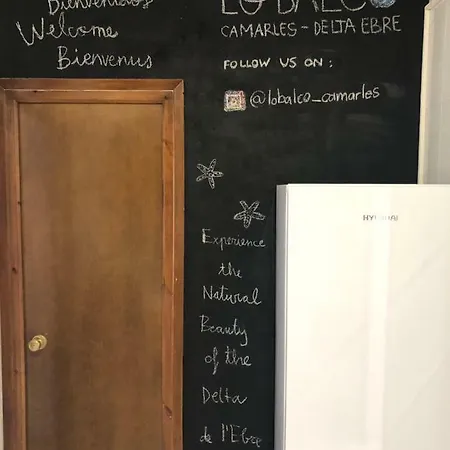 Bienvenidos
Welcome
Bienvenus
LO BALCO
CAMARLES - DELTA EBRE
FOLLOW US ON :
@lobalco_camarles
HYUNDAI
Experience
the
Natural
Beauty
of the
Delta
de l'Ebre